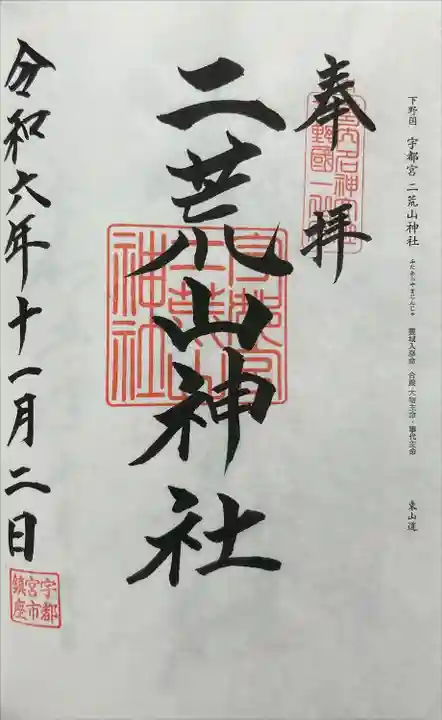 下野国 宇都宮 二荒山神社 ふたあらやまじんじゃ 豊城入彦命 合殿・大物主命・事代主命 東山道
奉拝
二荒山神社
宇都宮
二荒山
神社
令和六年十一月二日
宇都
宮市
鎮座